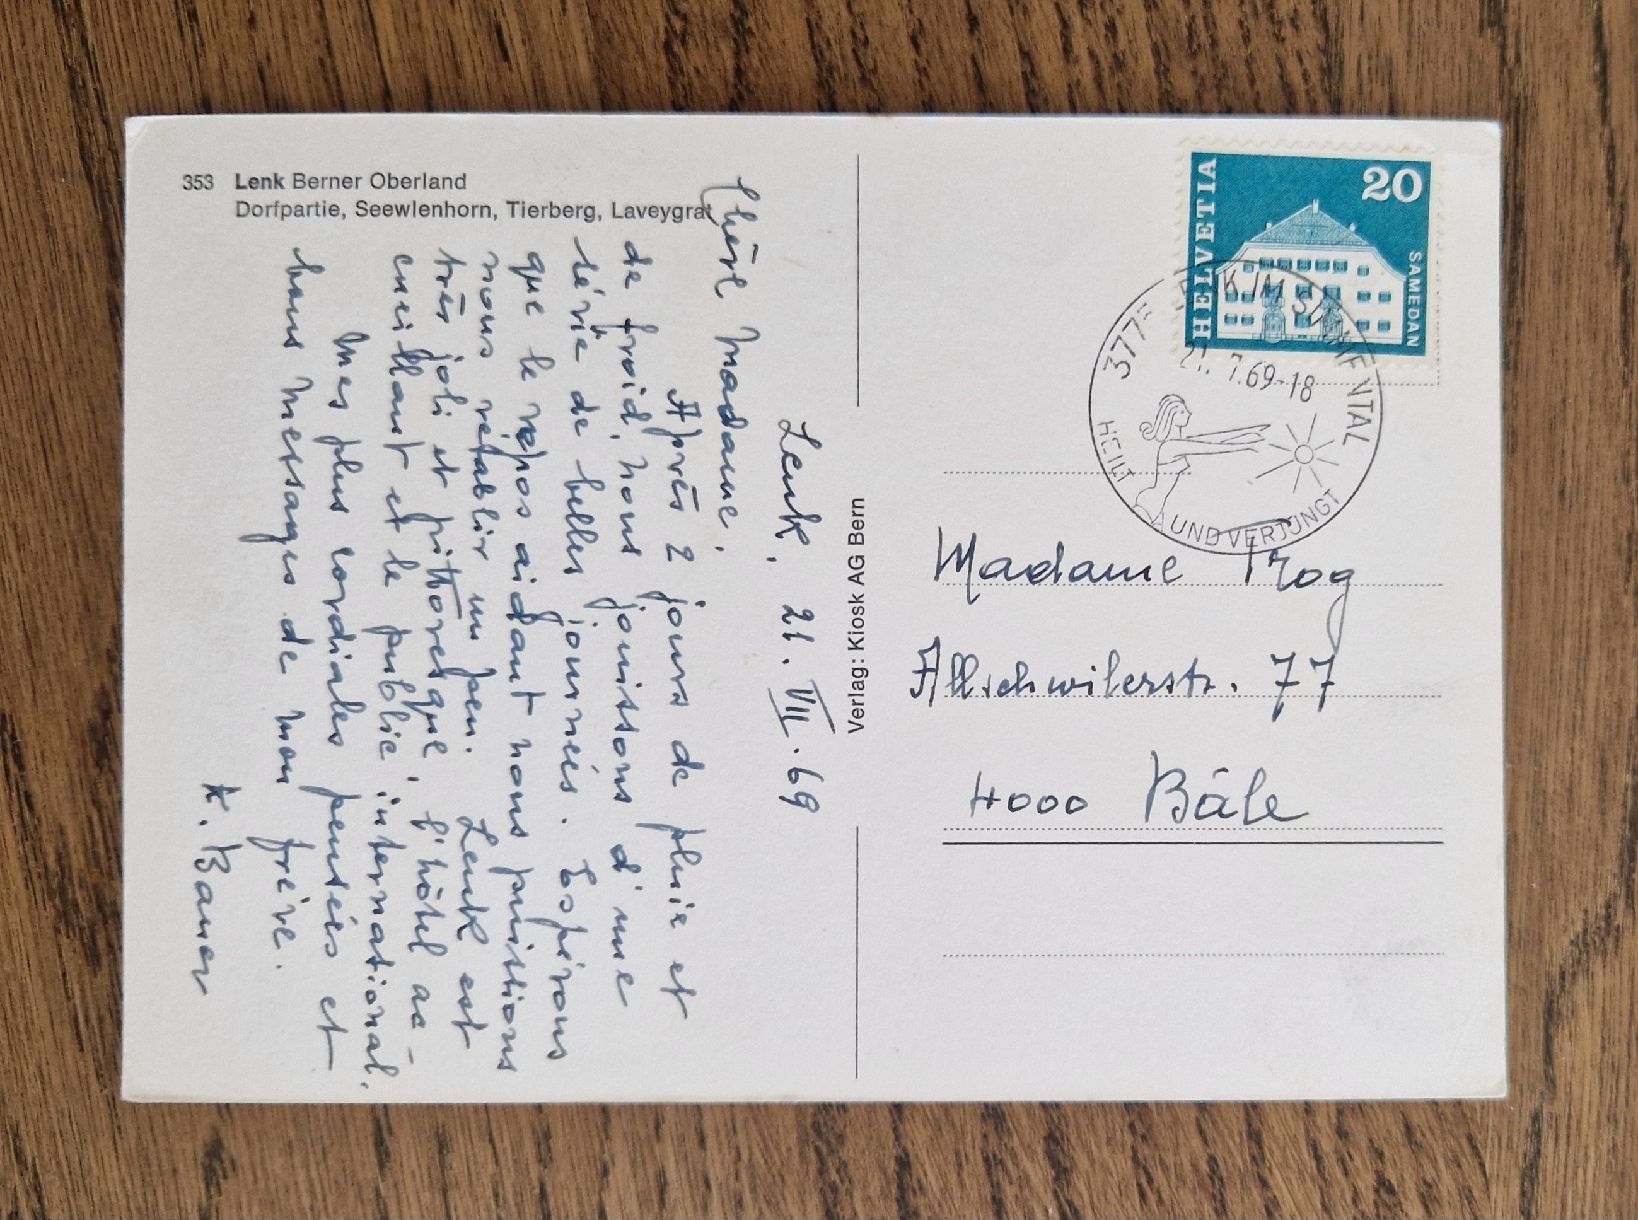 353 Lenk Berner Oberland
Dorfpartie, Seewlenhorn, Tierberg, Laveygrat
Lenk, 21. VII. 69
Chère Madame,
Après 2 jours de pluie et
de froid, nous jouissons d'une
série de belles journées. Espérons
que le repos aidant nous puissions
nous rétablir un peu. Lenk est
très joli et pittoresque, l'hôtel ac-
cueillant et le public international.
Mes plus cordiales pensées et
bons messages de mon frère.
K. Bauer
Verlag: Kiosk AG Bern
HELVETIA
20
SAMEDAN
377 LENK IM SIMMENTAL
21. 7.69-18
HEILT UND VERJÜNGT
Madame Trog
Allschwilerstr. 77
4000 Bâle